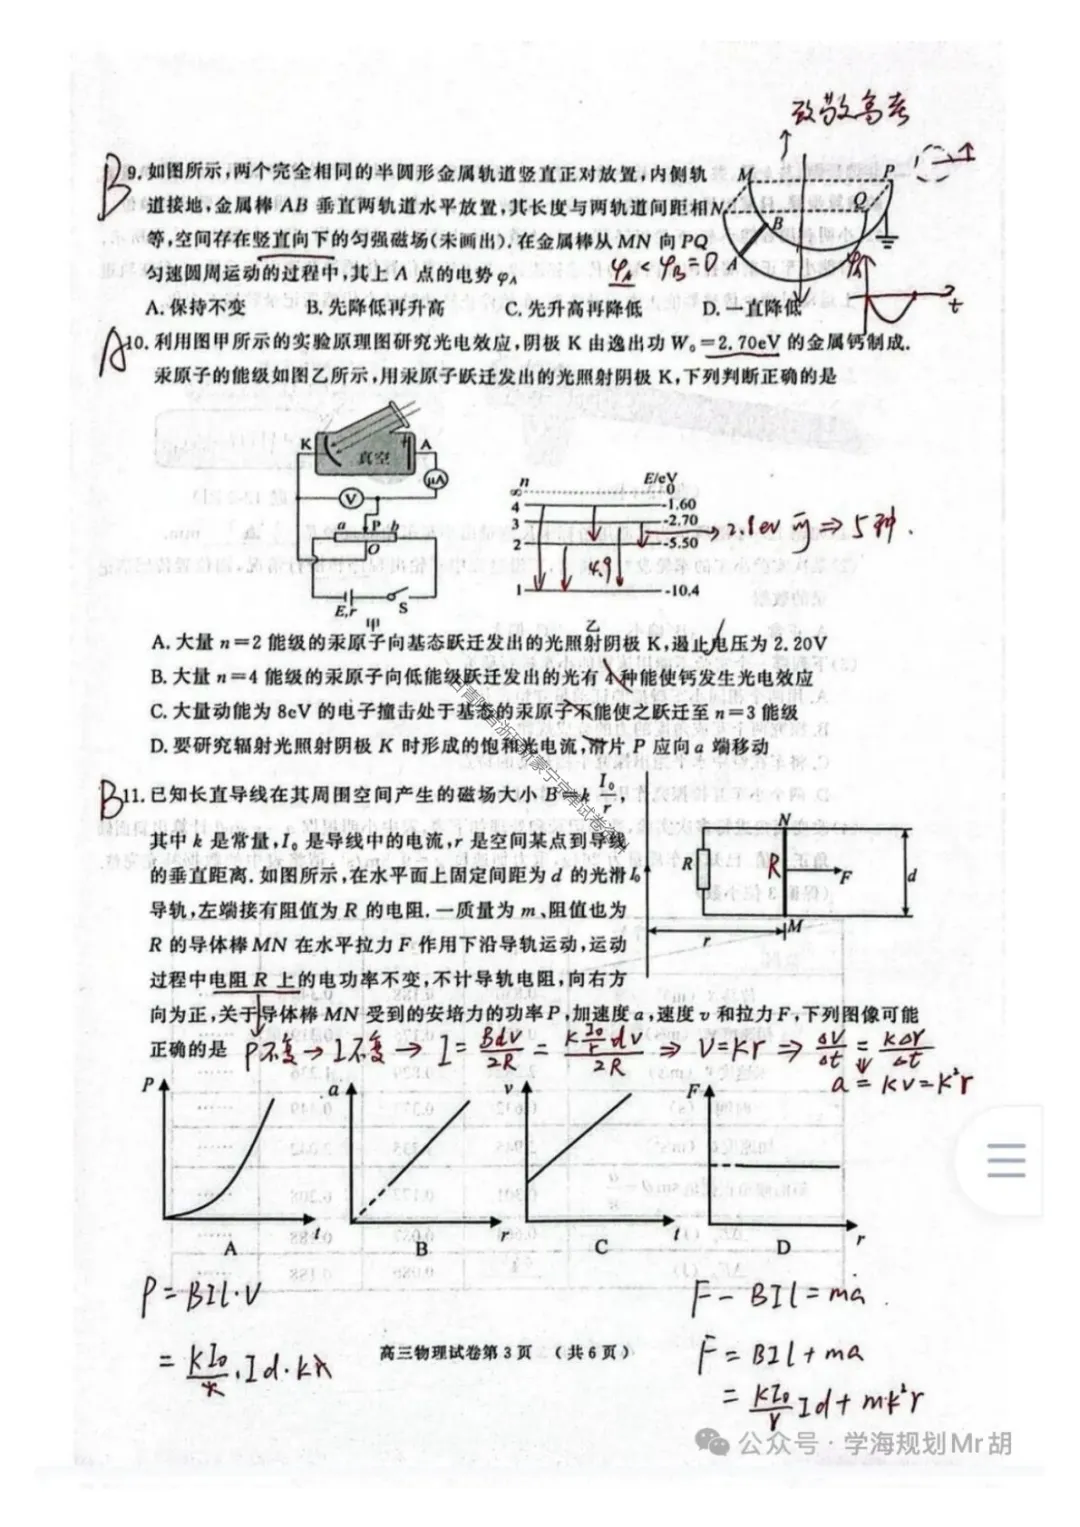 致敬高考
B
9. 如图所示,两个完全相同的半圆形金属轨道竖直正对放置,内侧轨
道接地,金属棒 AB 垂直两轨道水平放置,其长度与两轨道间距相
等,空间存在竖直向下的匀强磁场(未画出),在金属棒从 MN 向 PQ
匀速圆周运动的过程中,其上 A 点的电势 φA
φA < φB = 0
A. 保持不变 B. 先降低再升高 C. 先升高再降低 D. 一直降低
M P N Q B A
φA t
A
10. 利用图甲所示的实验原理图研究光电效应,阴极 K 由逸出功 W₀=2.70eV 的金属钙制成.
汞原子的能级如图乙所示,用汞原子跃迁发出的光照射阴极 K,下列判断正确的是
K A
真空
μA
V
a P b
O
E,r S
甲
n E/eV
∞ 0
4 -1.60
3 -2.70
2 -5.50
1 -10.4
2.8ev 可⇒5种.
4.9
乙
A. 大量 n=2 能级的汞原子向基态跃迁发出的光照射阴极 K,遏止电压为 2.20V
B. 大量 n=4 能级的汞原子向低能级跃迁发出的光有 4 种能使钙发生光电效应
C. 大量动能为 8eV 的电子撞击处于基态的汞原子不能使之跃迁至 n=3 能级
D. 要研究辐射光照射阴极 K 时形成的饱和光电流,滑片 P 应向 a 端移动
B
11. 已知长直导线在其周围空间产生的磁场大小 B=k I₀/r,
其中 k 是常量,I₀ 是导线中的电流,r 是空间某点到导线
的垂直距离. 如图所示,在水平面上固定间距为 d 的光滑
导轨,左端接有阻值为 R 的电阻. 一质量为 m、阻值也为
R 的导体棒 MN 在水平拉力 F 作用下沿导轨运动,运动
过程中电阻 R 上的电功率不变,不计导轨电阻,向右方
向为正,关于导体棒 MN 受到的安培力的功率 P,加速度 a,速度 v 和拉力 F,下列图像可能
正确的是
N
R R F d
I₀
M
r
P不变→I不变→I=Bdv/2R=k I₀/r dv/2R⇒V=Kr⇒ΔV/Δt=KΔr/Δt
a=KV=K²r
P t A
a r B
v t C
F r D
P=BIl·V
=KI₀/r·Id·kr
F-BIl=ma.
F=BIl+ma
=KI₀/r Id+mk²r
高三物理试卷第 3 页 (共 6 页)
公众号·学海规划Mr胡